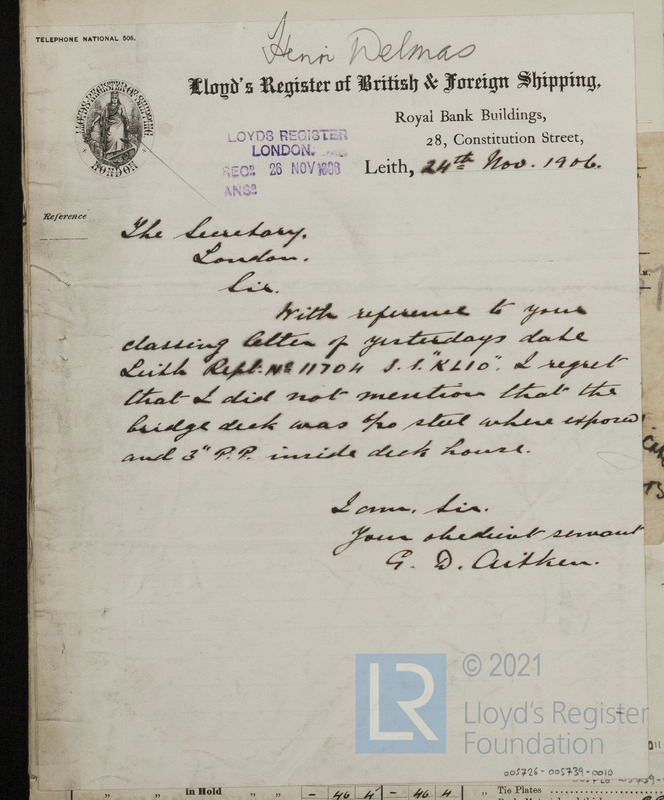 TELEPHONE NATIONAL 506.
Henri Delmas
Lloyd's Register of British & Foreign Shipping,
Royal Bank Buildings,
28, Constitution Street,
Leith, 24th Nov. 1906.
LLOYD'S REGISTER OF SHIPPING
LONDON
LLOYDS REGISTER
LONDON.
RECD 26 NOV
ANSD
Reference
The Secretary.
London.
Sir.
With reference to your
classing letter of yesterdays date
Leith Rept. No 11704 S.S. "KLIO". I regret
that I did not mention that the
bridge deck was steel where exposed
and 3" P.P. inside deck house.
I am, Sir.
Your obedient servant
G. D. Aitken.
LR
© 2021
Lloyd's Register
Foundation
005726-005739-0010
in Hold
" " " " – 46 4 – 46 4 " Tie Plates